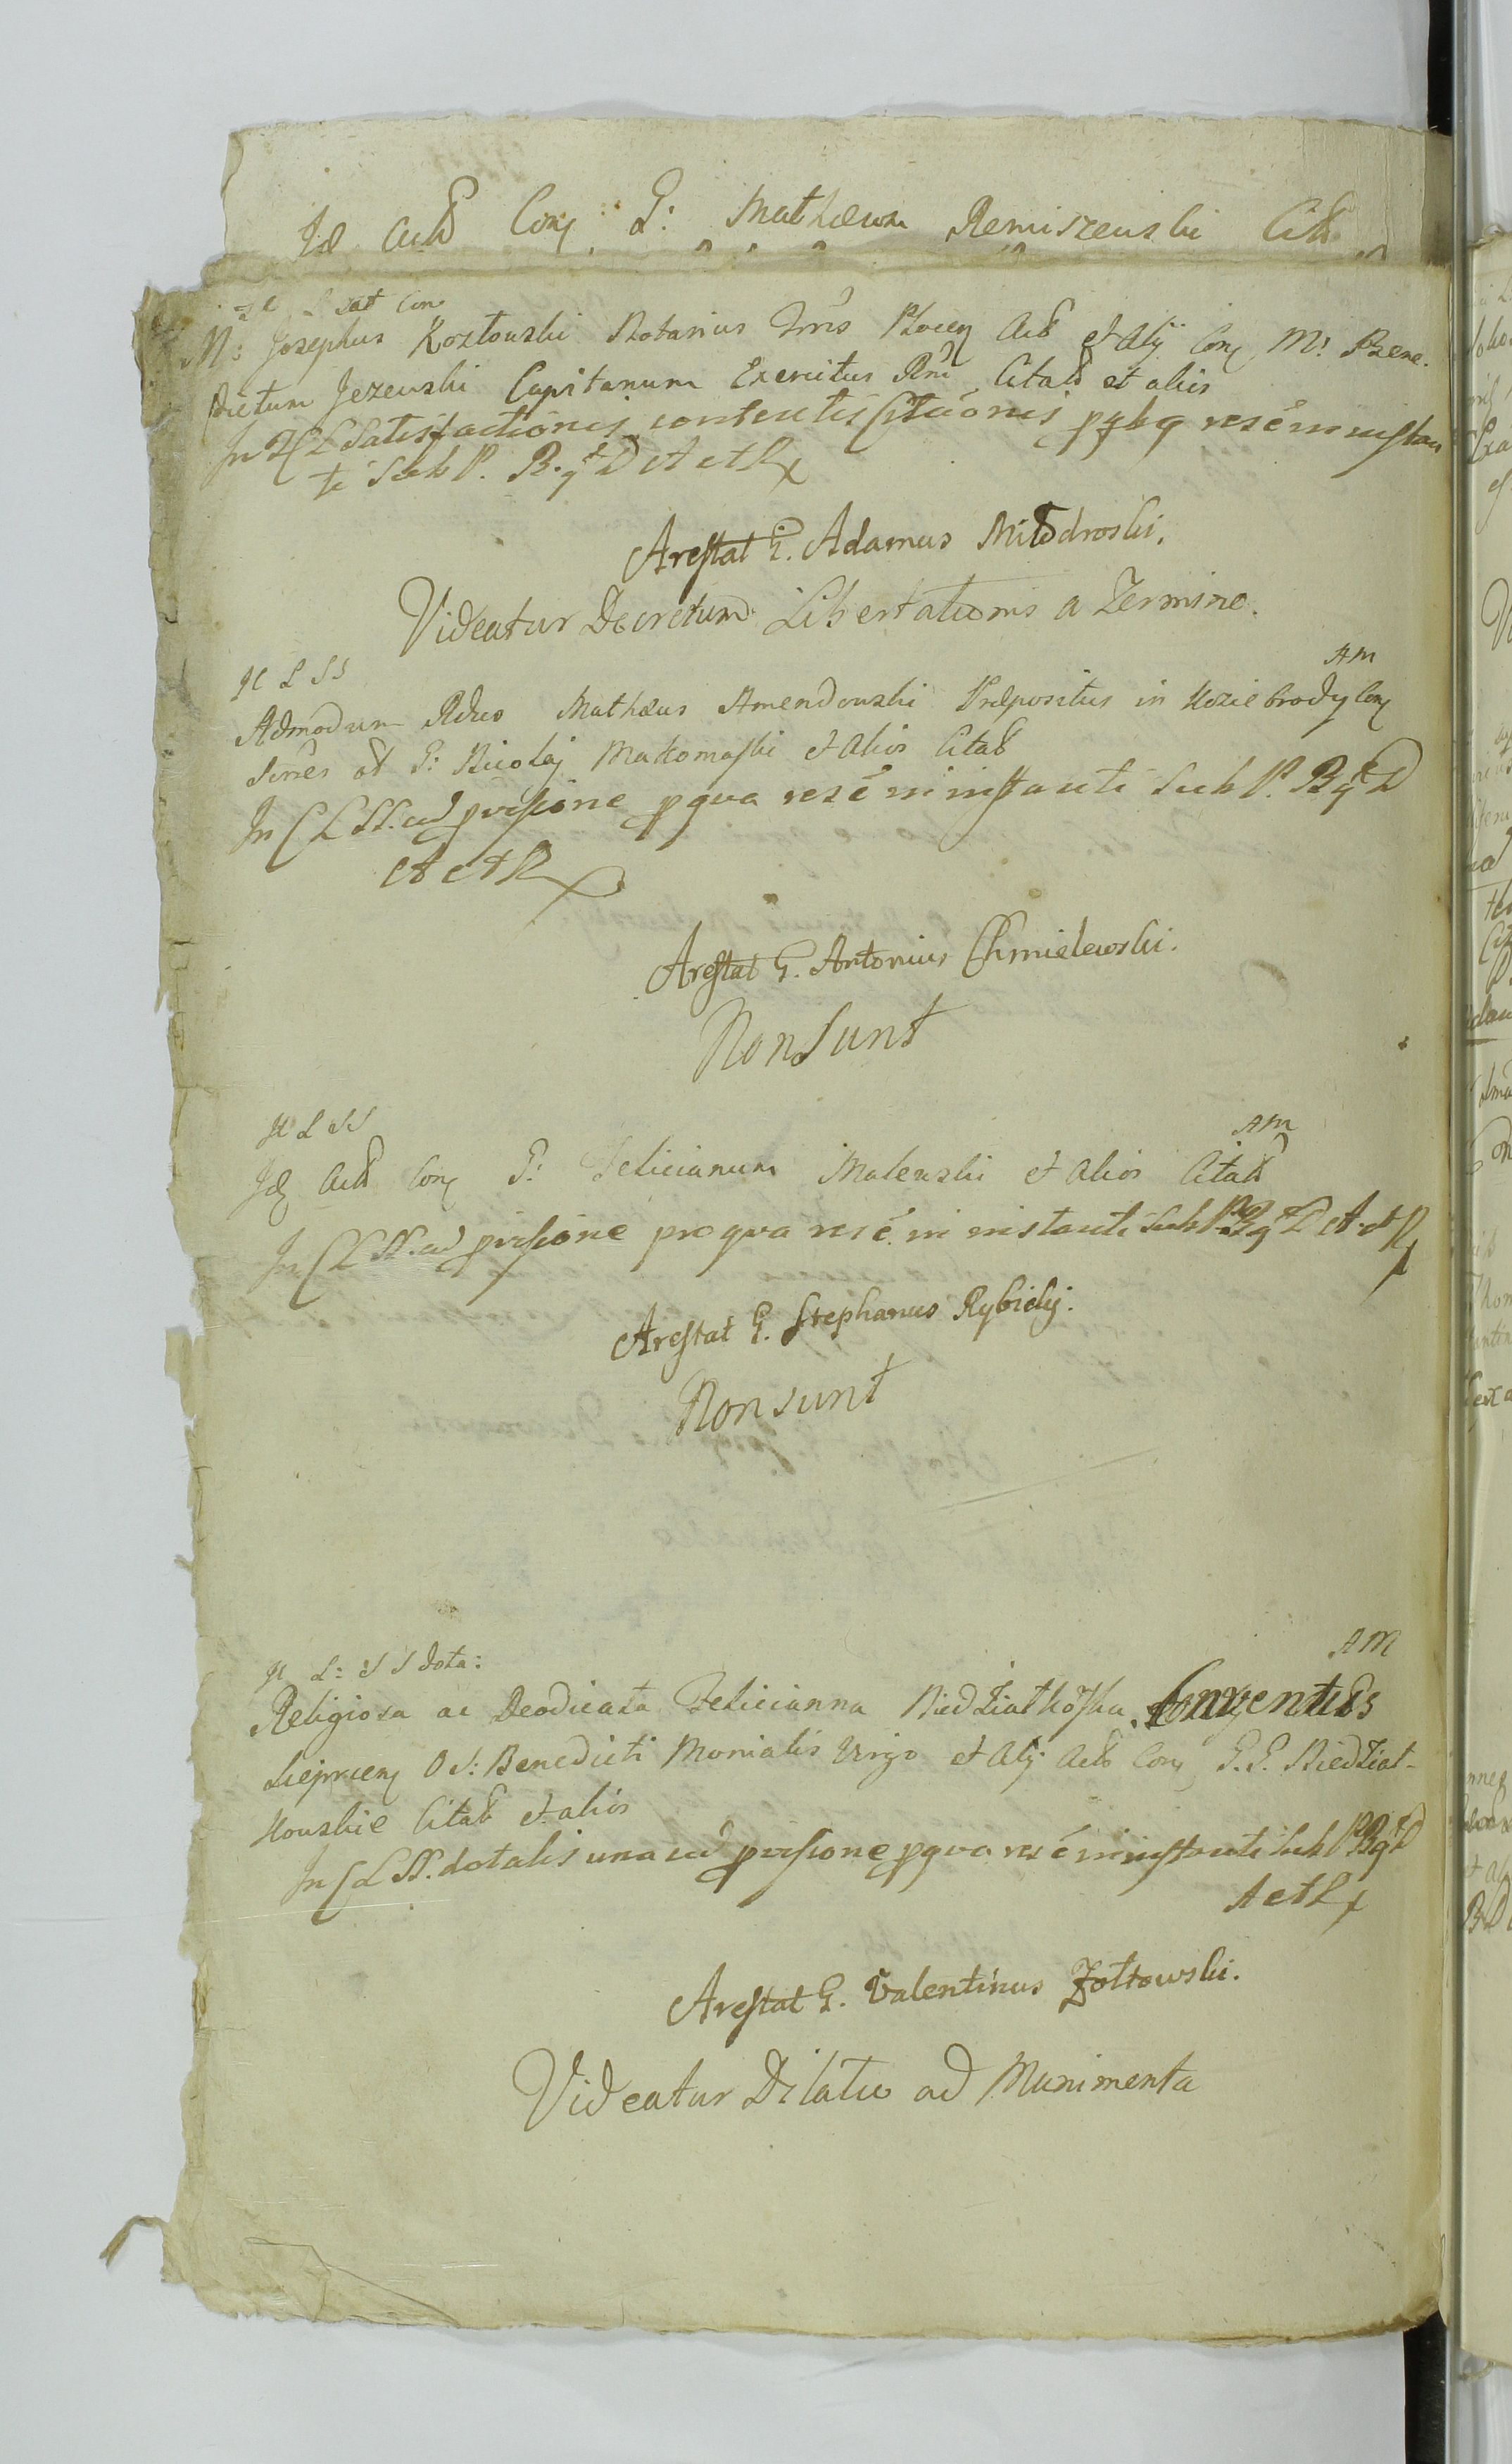 Id Actd Con G: Mathæum Remiszewski Citd
M: Josephus Kozłowski Notarius Trris Plocen Actd et Alij Con M: Bene-
dictum Jezewski Capitanum Exercitus Citatd et alios
In Satisfactionis contentis Citaonis resé in instan
ti Sub P. B. D A et R
Arestat G. Adamus Miłodroski.
Videatur Decretum Libertationis a Termino.
H L SS AM
Admodum Rdus Mathæus Amendowski Præpositus in Koziebrody Con
Sures od G: Nicolaj Makomaski et Alios Citatd
In C L SS. cu pvisione pqua resé in instanti Sub P. B D
A et R
Arestat G. Antonius Chmielewski.
Non Sunt
H L SS AM
Id Actd Con G: Felicianum Malewski et Alios Citatd
In C L SS. cu pvisione pro qua resé in instanti Sub P. B D A et R
Arestat G. Stephanus Rybicki.
Non sunt
H L: SS dota: AM
Religiosa ac Deodicata Felicianna Niedziałkoska Conventus
Sieprcen O S: Benedicti Monialis Virgo et Alij Actd Con G. G. Niedział-
kowskie Citatd et alios
In C L SS. dotalis una cu pvisione pqua resé in instanti Sub P B D
A et R
Arestat G. Valentinus Zołtowski.
Videatur Dilatio ad Munimenta